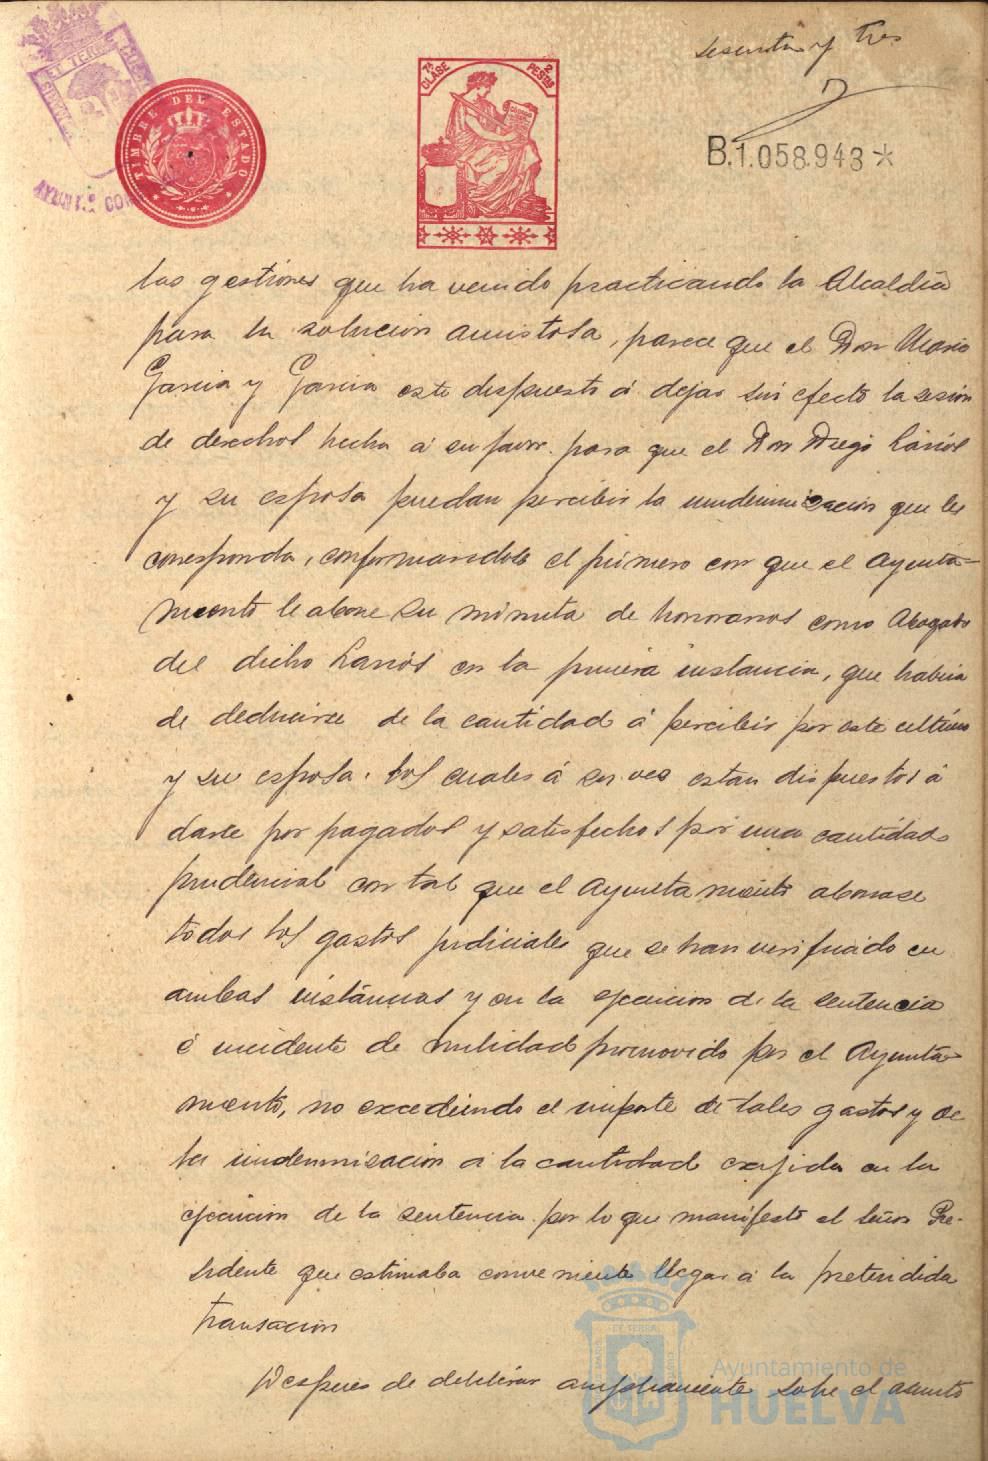 sesenta y tres
7ª CLASE 2 PESTAS
TIMBRE DEL ESTADO
B.1.058.943*
las gestiones que ha venido practicando la Alcaldía
para la solucion amistosa, parece que el Don Mario
Garcia y Garcia este dispuesto á dejar sin efecto la sesion
de derechos hecha á su favor. para que el Don Diego Larios
y su esposa puedan percibir la indemnizacion que les
corresponda, conformandose el primero con que el Ayunta-
miento le abone su minuta de honorarios como Abogado
del dicho Larios en la primera instancia, que habria
de deducirse de la cantidad á percibir por este ultimo
y su esposa. los cuales á su vez estan dispuestos á
darse por pagados y satisfechos por una cantidad
prudencial con tal que el Ayuntamiento abonase
todos los gastos judiciales que se han verificado en
ambas instancias y en la ejecucion de la sentencia
é incidente de nulidad promovido por el Ayunta-
miento, no excediendo el importe de tales gastos y de
la indemnizacion á la cantidad exijida en la
ejecucion de la sentencia. por lo que manifestó el Señor Pre-
sidente que estimaba conveniente llegar á la pretendida
transacion
Despues de deliberar ampliamente sobre el asunto
Ayuntamiento de
HUELVA